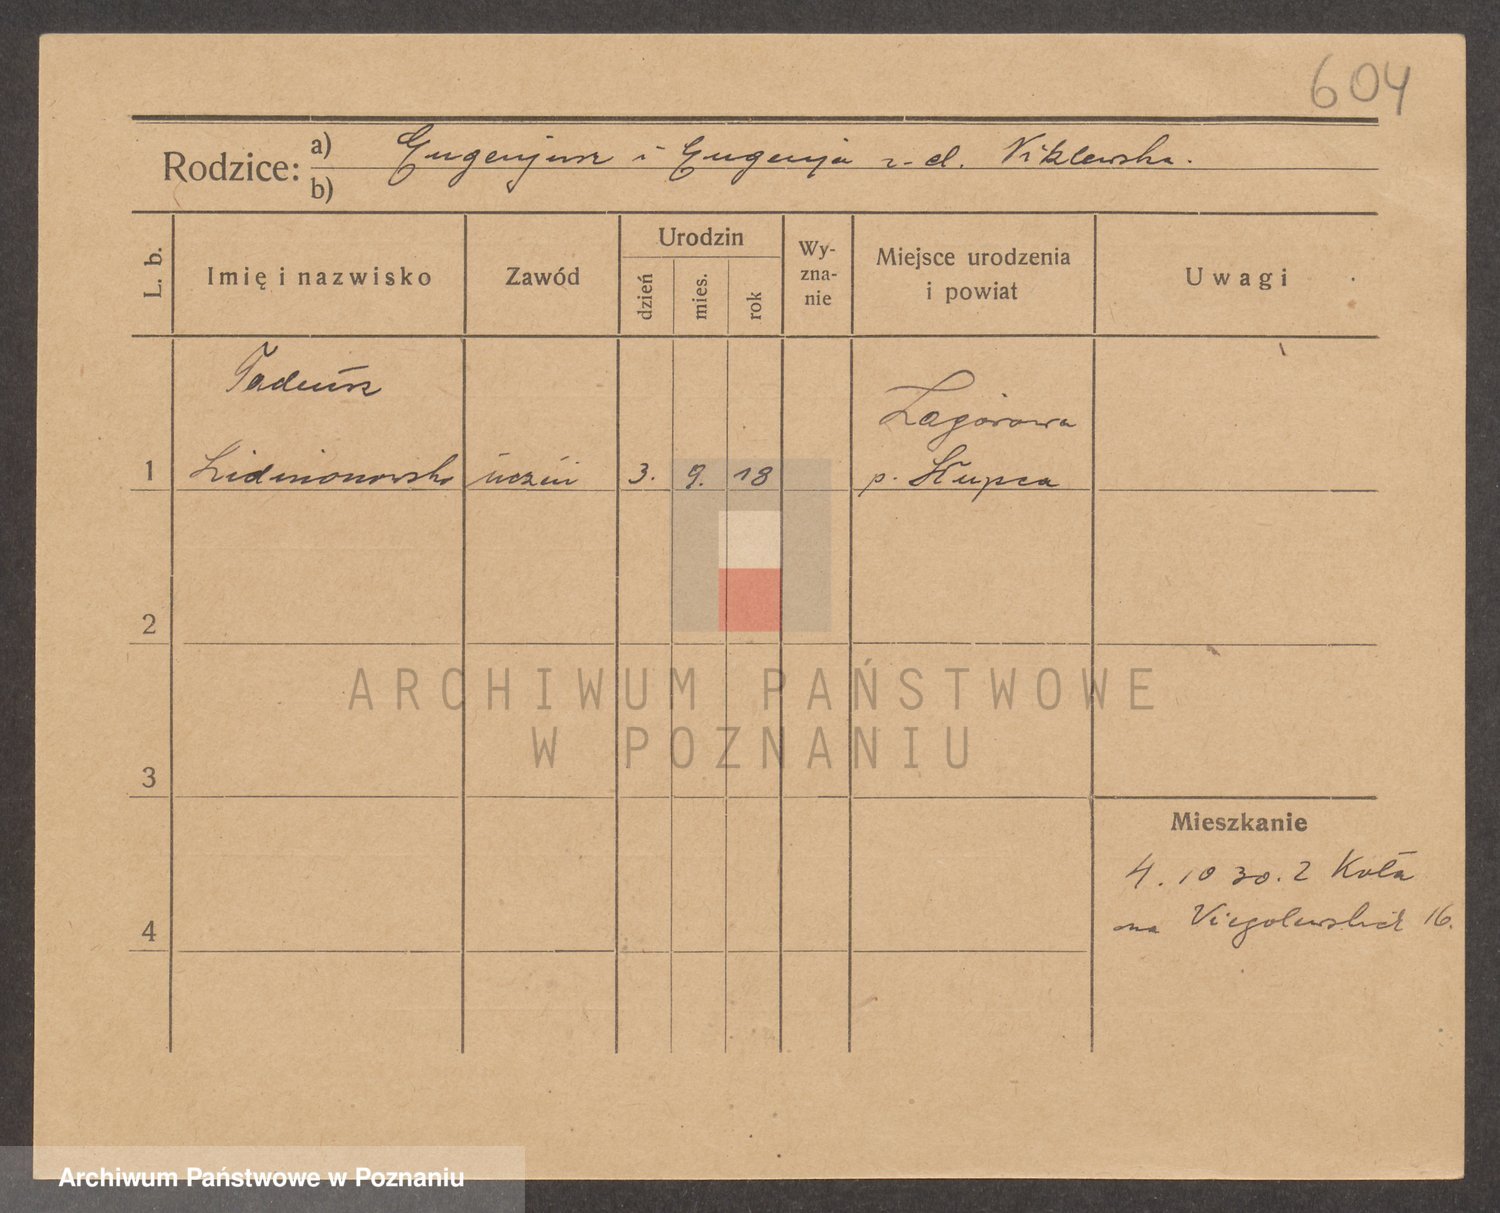 604
Rodzice: a) Eugenjusz i Eugenja z-d. Niklewska.
b)
L. b. Imię i nazwisko Zawód Urodzin dzień mies. rok Wy-zna-nie Miejsce urodzenia i powiat Uwagi
Tadeusz Zagórowa
1 uczeń 3. 9. 18 p. Słupca
2
3
4
Mieszkanie
4. 10 30. z Koła
na 16.
ARCHIWUM PAŃSTWOWE
W POZNANIU
Archiwum Państwowe w Poznaniu